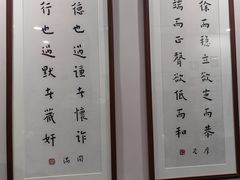 徐而穩立欲定而恭
端而正聲欲低而和
德也過謙者懷詐
行也過默者藏奸